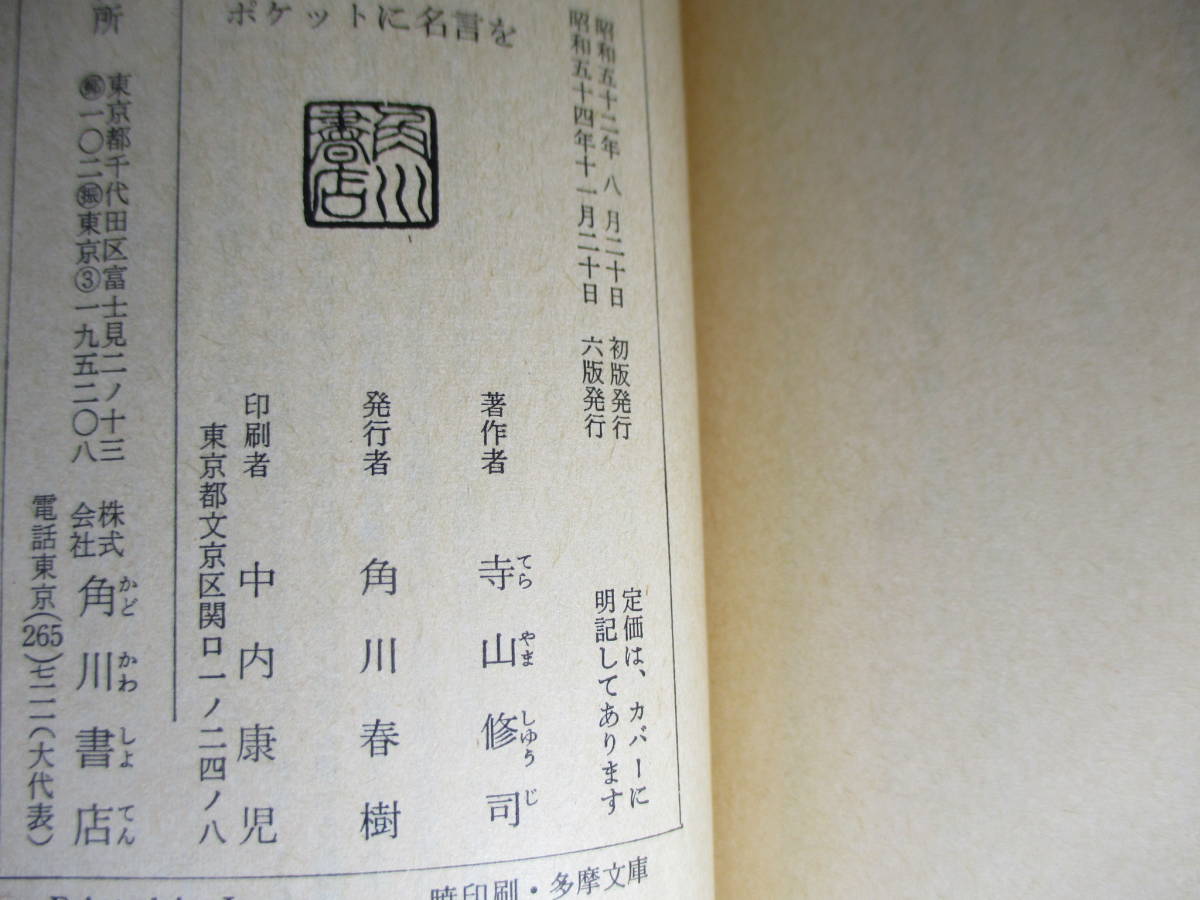 昭和五十二年 八 月二十日 初版発行
昭和五十四年十一月二十日 六版発行
定価は、カバーに
明記してあります
ポケットに名言を
角川
書店
著作者 寺山修司
てらやましゅうじ
発行者 角川春樹
印刷者 中内康児
東京都文京区関口一ノ二四ノ八
所
東京都千代田区富士見二ノ十三
一〇二 振 東京③一九五二〇八
株式
会社
角川書店
かどかわしょてん
電話東京(265)七一一一(大代表)
暁印刷・多摩文庫